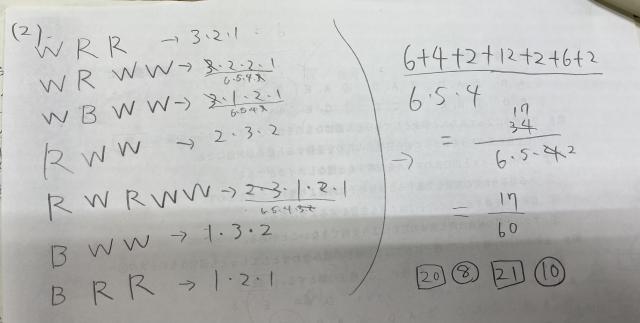 (2).
W R R → 3・2・1
W R W W → 3・2・2・1 / 6・5・4・3
W B W W → 3・1・2・1 / 6・5・4・3
R W W → 2・3・2
R W R W W → 2・3・1・2・1 / 6・5・4・3・2
B W W → 1・3・2
B R R → 1・2・1
→ 6+4+2+12+2+6+2 / 6・5・4
= 34 17 / 6・5・4 2
= 17 / 60
20 8 21 10